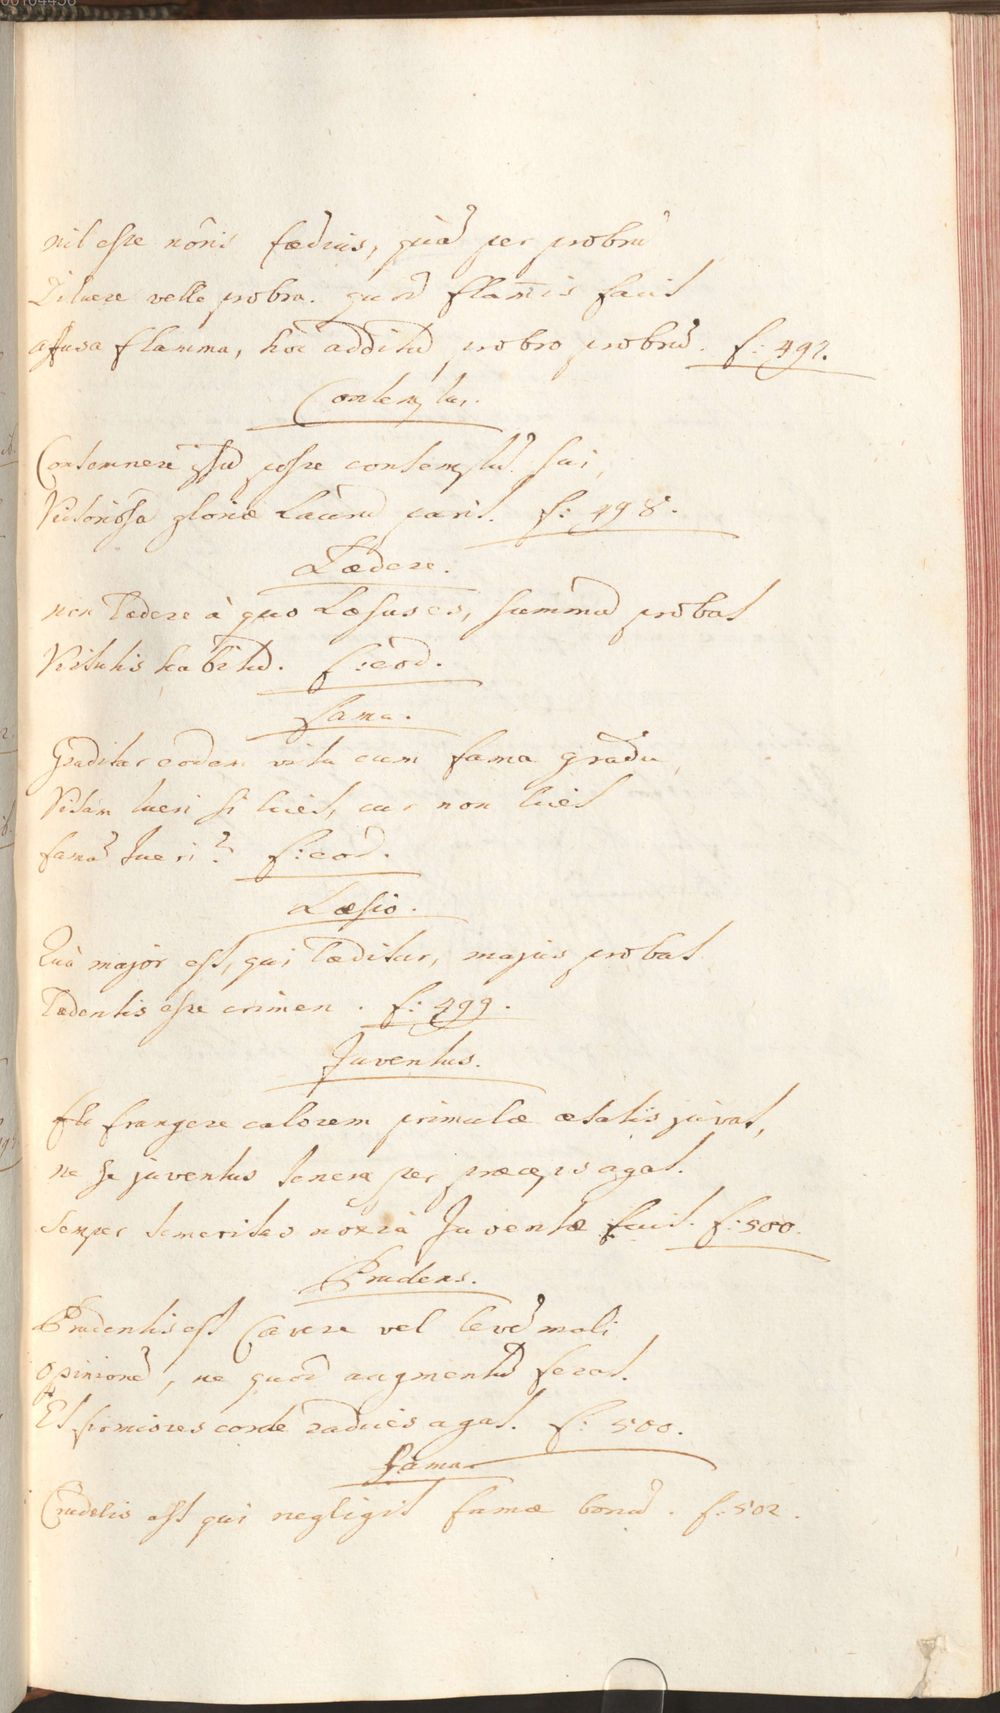 nil esse nôris fœdius, quàm per probrũ
Diluere velle probra. quod flam̃is facit
affusa flamma, hoc additũ probro probrũ. f: 492.
Contemptus.
Contemnere posse contemptũ sui,
Victoriosa gloriæ Laurũ parit. f: 498.
Lædere.
non Lædere à quo Læsus es, summũ probat
Virtutis habitũ. f: eod.
fama.
Graditur eodem vita cum fama gradu,
Vitam tueri si licet, cur non licet
famã tueri? f: eod.
Læsio.
Quò major est, qui Læditur, majus probat
Lædentis esse crimen. f: 499.
Juventus.
frangere calorem primulæ ætatis juvat,
ne se juventus tenera per præceps agat.
Semper temeritas noxia Juventæ fuit. f: 500.
Prudens.
Prudentis est Cavere vel levẽ mali
opinionẽ, ne quod augmentũ ferat.
Et firmiores corde radices agat. f: 500.
fama
Crudelis est qui negligit famæ bonũ. f: 502.